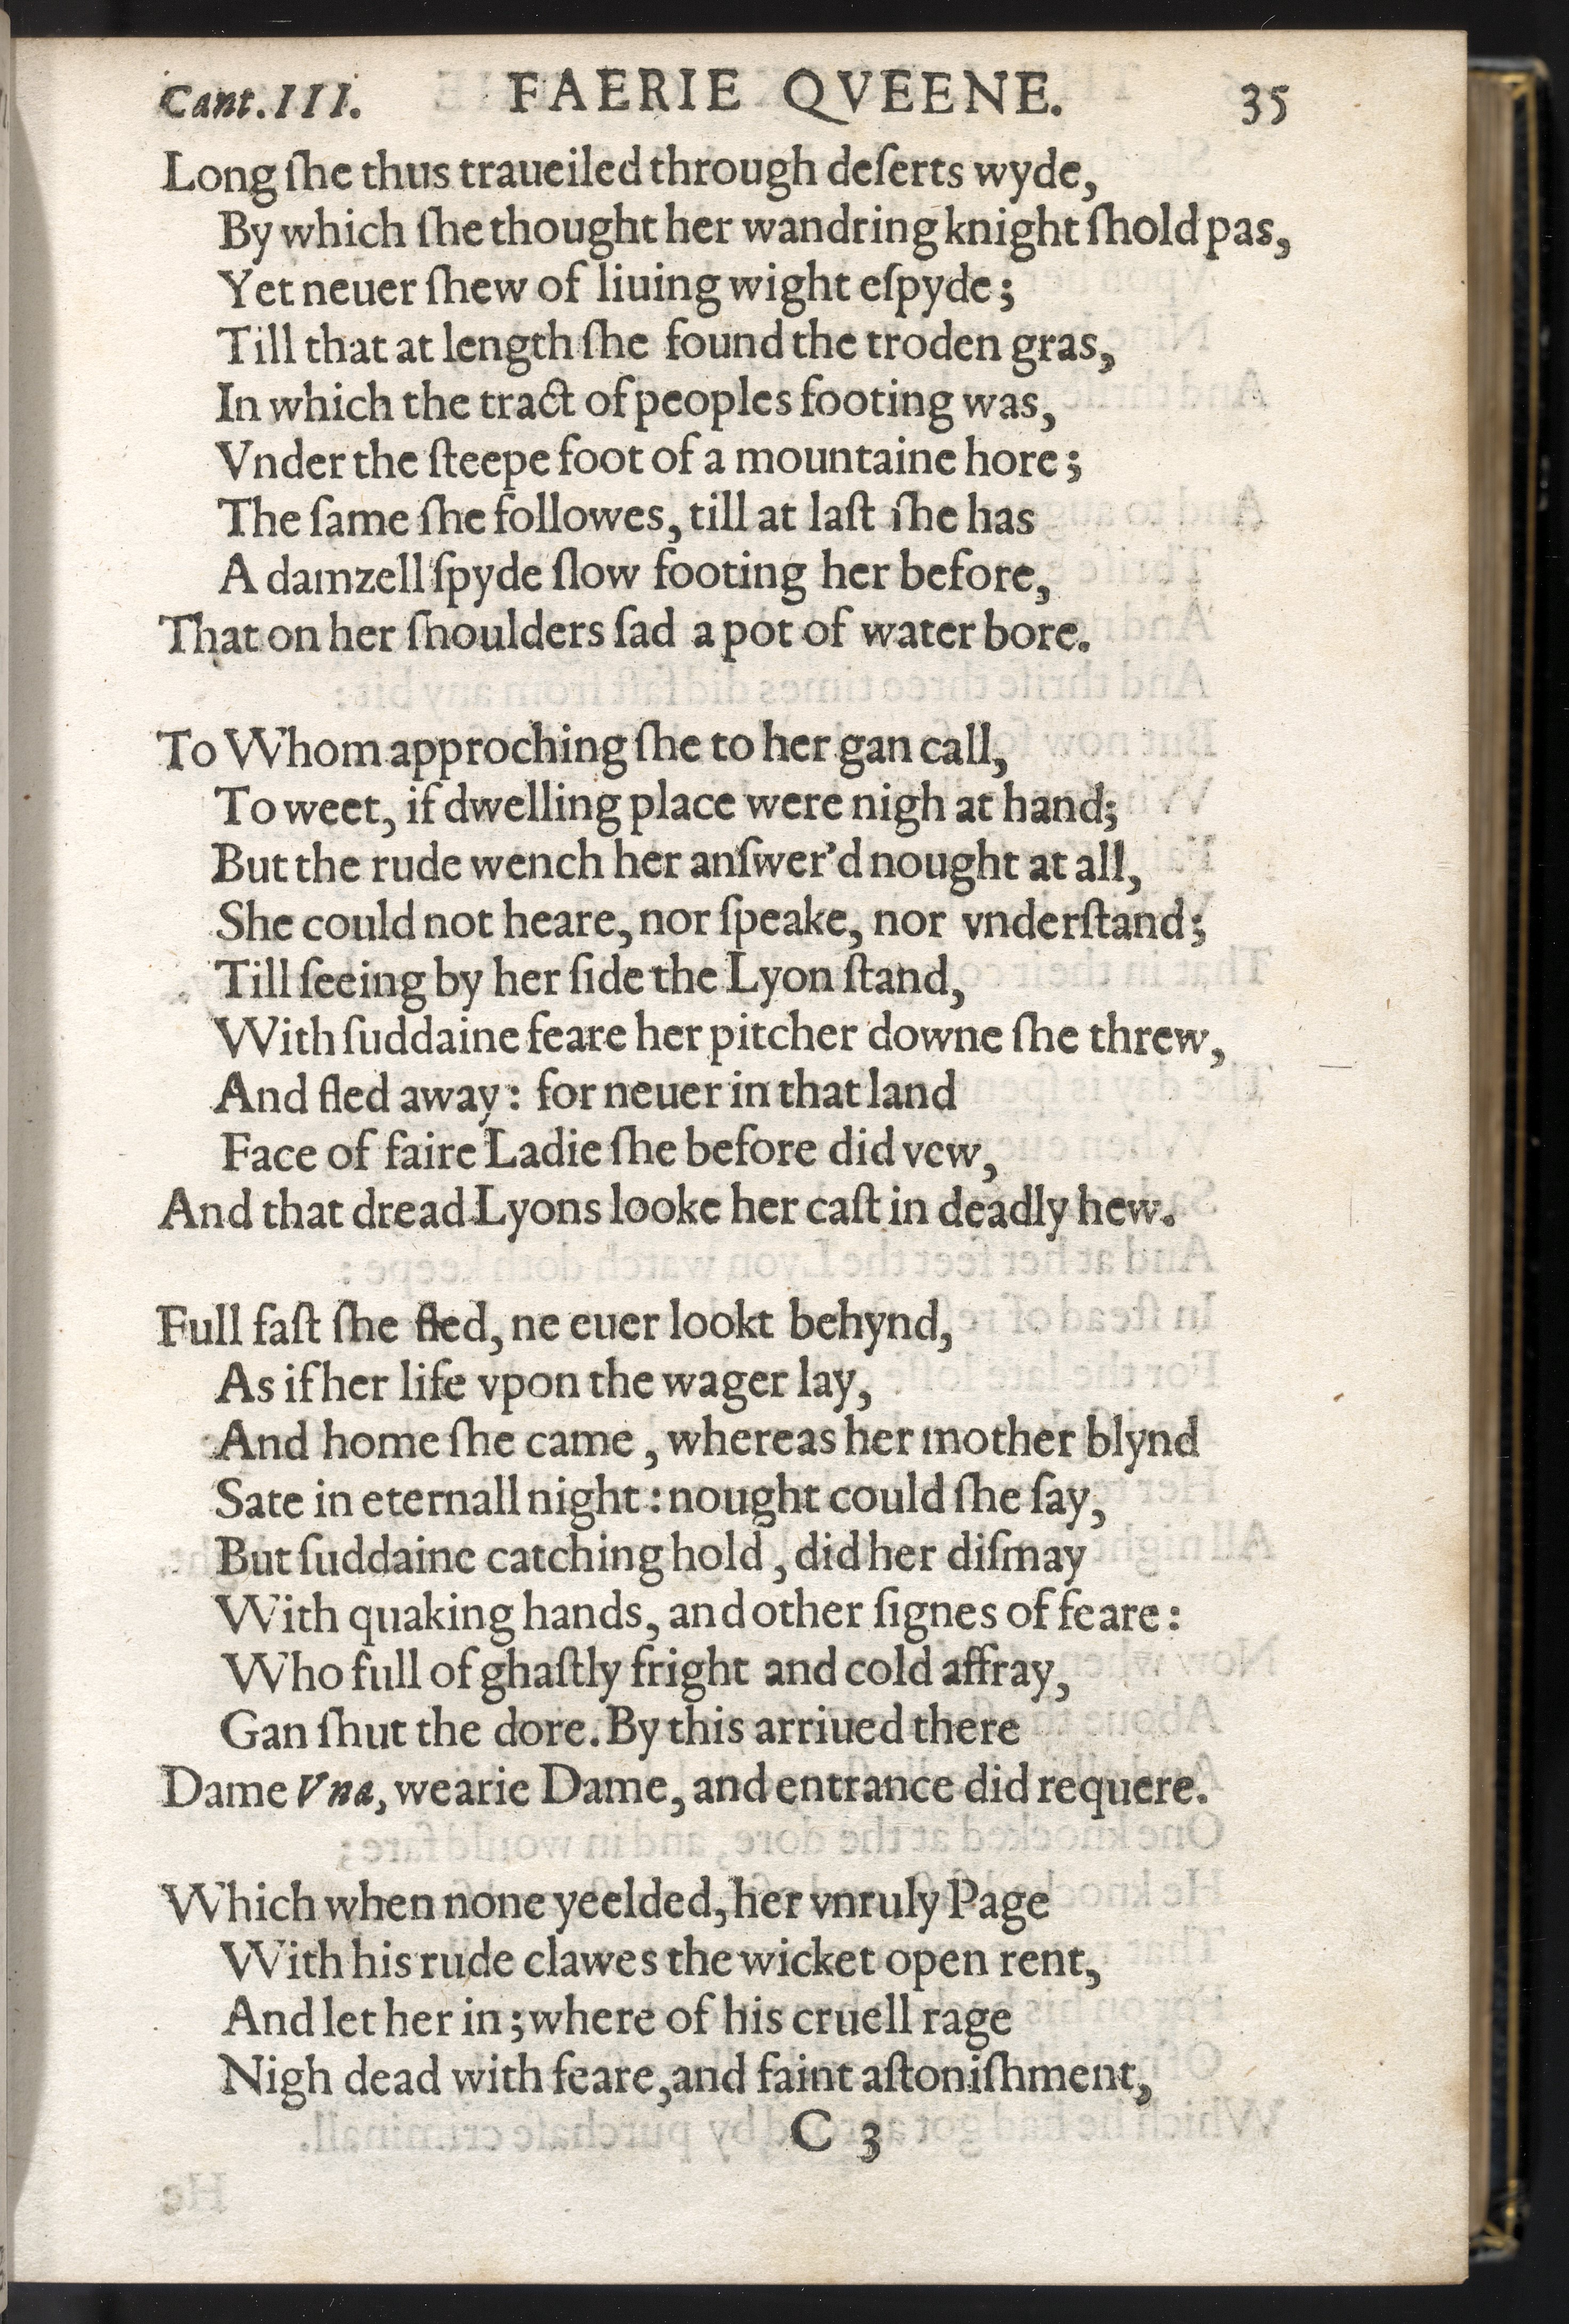 Cant. III. FAERIE QVEENE. 35
Long ſhe thus traueiled through deſerts wyde,
By which ſhe thought her wandring knight ſhold pas,
Yet neuer ſhew of liuing wight eſpyde;
Till that at length ſhe found the troden gras,
In which the tract of peoples footing was,
Vnder the ſteepe foot of a mountaine hore;
The ſame ſhe followes, till at laſt ſhe has
A damzell ſpyde ſlow footing her before,
That on her ſhoulders ſad a pot of water bore.
To Whom approching ſhe to her gan call,
To weet, if dwelling place were nigh at hand;
But the rude wench her anſwer'd nought at all,
She could not heare, nor ſpeake, nor vnderſtand;
Till ſeeing by her ſide the Lyon ſtand,
With ſuddaine feare her pitcher downe ſhe threw,
And fled away: for neuer in that land
Face of faire Ladie ſhe before did vew,
And that dread Lyons looke her caſt in deadly hew.
Full faſt ſhe fled, ne euer lookt behynd,
As if her life vpon the wager lay,
And home ſhe came, whereas her mother blynd
Sate in eternall night: nought could ſhe ſay,
But ſuddaine catching hold, did her diſmay
With quaking hands, and other ſignes of feare:
Who full of ghaſtly fright and cold affray,
Gan ſhut the dore. By this arriued there
Dame Vna, wearie Dame, and entrance did requere.
Which when none yeelded, her vnruly Page
With his rude clawes the wicket open rent,
And let her in; where of his cruell rage
Nigh dead with feare, and faint aſtoniſhment,
C 3